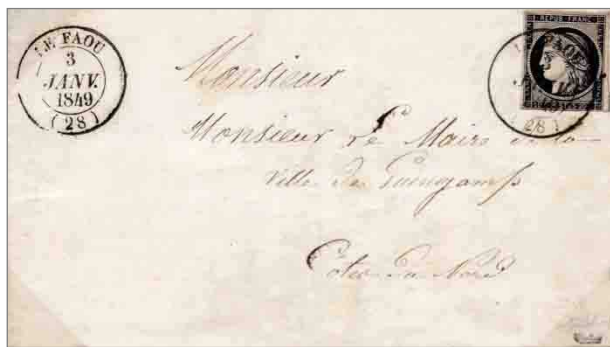 LE FAOU
3
JANV.
1849
(28)
REPUB. FRANC.
LE FAOU
3
(28)
Monsieur
Monsieur Le Maire de la
Ville de Guingamp
Côtes du Nord